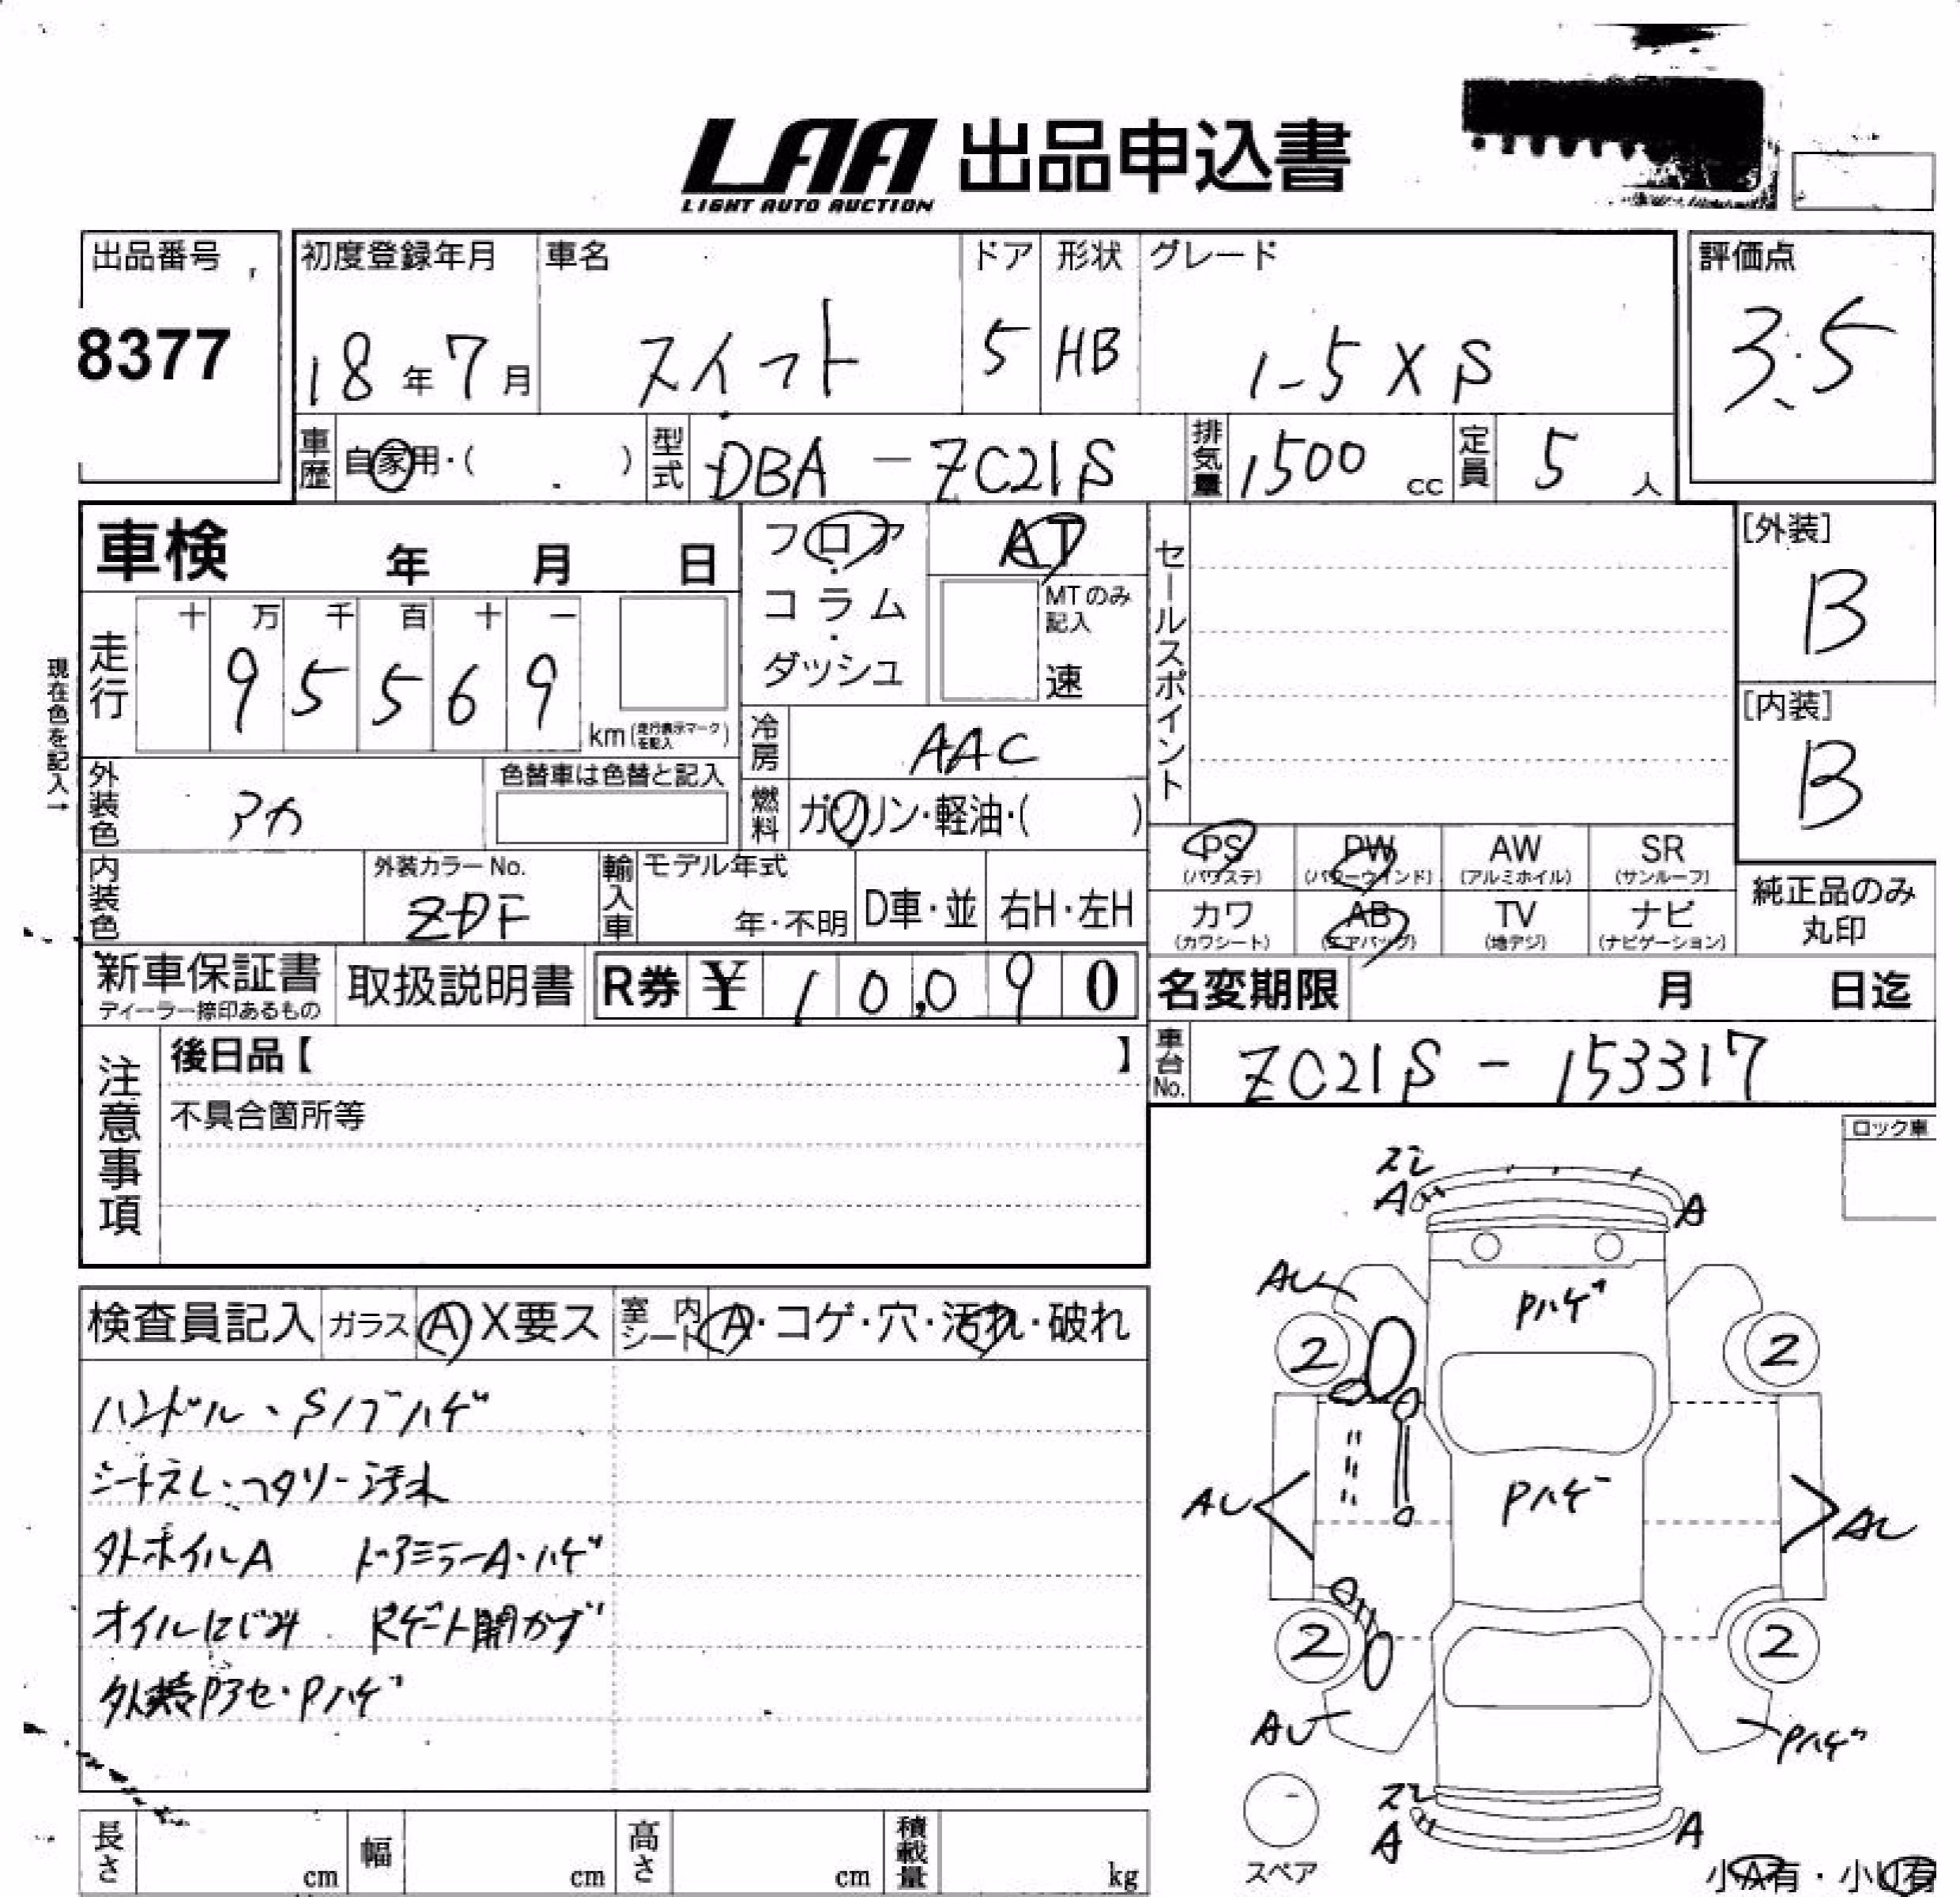 LAA 出品申込書
LIGHT AUTO AUCTION
出品番号
8377
初度登録年月
18年7月
車名
スイフト
ドア
5
形状
HB
グレード
1.5 XS
評価点
3.5
車歴 自家用・( )
型式 DBA - ZC21S
排気量 1500 cc
定員 5 人
車検 年 月 日
フロア・コラム・ダッシュ
AT
MTのみ記入
速
セールスポイント
[外装]
B
[内装]
B
現在色を記入→
走行
十 万 千 百 十 一
9 5 5 6 9
km(走行表示マークを記入)
冷房 AAC
外装色 アカ
色替車は色替と記入
燃料 ガソリン・軽油・( )
内装色
外装カラーNo.
ZDF
輸入車 モデル年式
年・不明
D車・並
右H・左H
PS (パワステ)
PW (パワーウインド)
AW (アルミホイル)
SR (サンルーフ)
カワ (カワシート)
AB (エアバッグ)
TV (地デジ)
ナビ (ナビゲーション)
純正品のみ
丸印
新車保証書
ディーラー捺印あるもの
取扱説明書
R券 ¥ 1 0,0 9 0
名変期限 月 日迄
車台No. ZC21S - 153317
注意事項
後日品【 】
不具合箇所等
ロック車
検査員記入
ガラス A X要ス
室内シート A・コゲ・穴・汚れ・破れ
ハンドル・Sノブハゲ
シートスレ・フタリー汚れ
外ホイルA ドアミラーA・ハゲ
オイルにじみ Rゲート開かず
外装Pアセ・Pハゲ
スレ
A
A
AU
Pハゲ
2
2
AU
Pハゲ
AU
2
2
AU
Pハゲ
スレ
A
A
スペア
小A有・小U有
長さ cm
幅 cm
高さ cm
積載量 kg